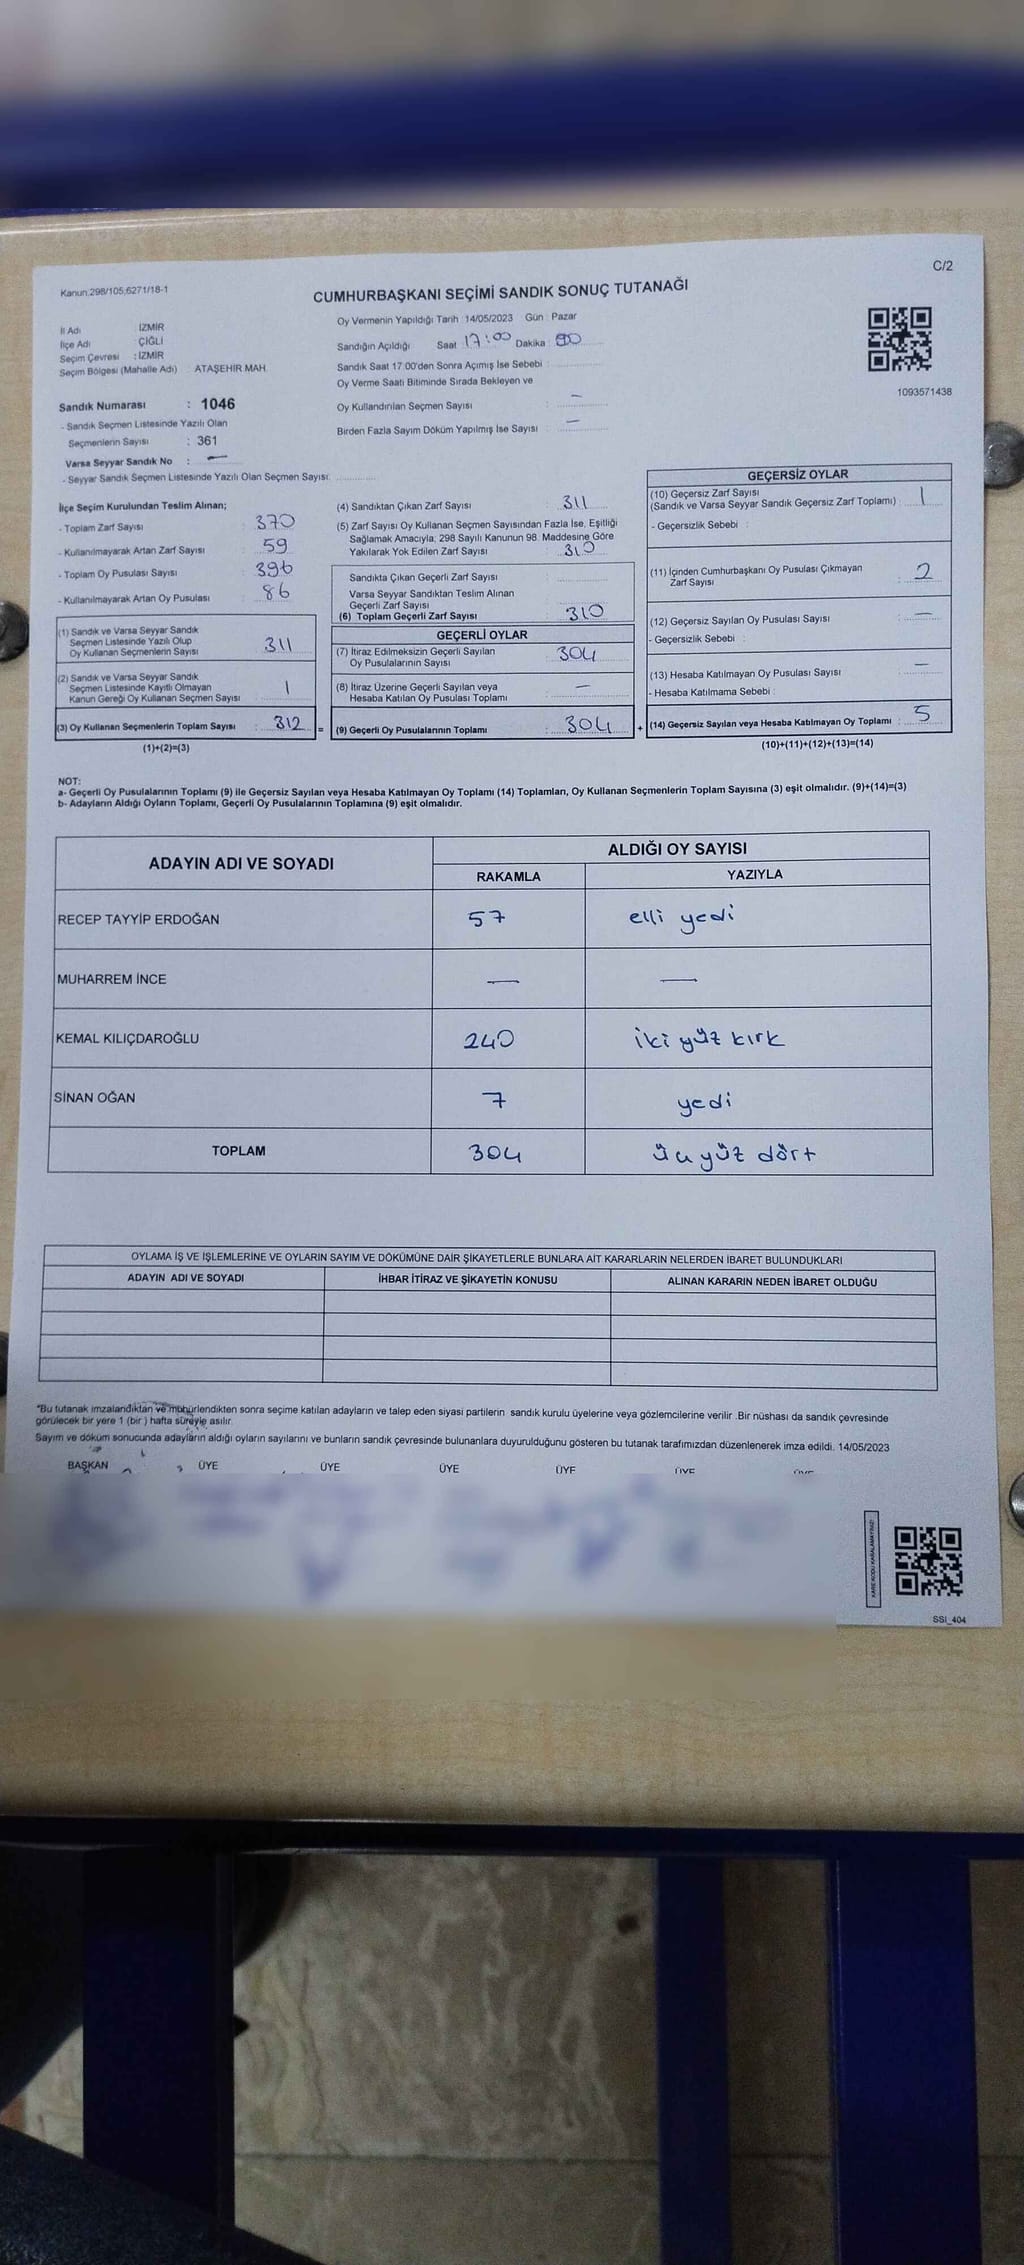 C/2
Kanun:298/105,6271/18-1
CUMHURBAŞKANI SEÇİMİ SANDIK SONUÇ TUTANAĞI
İl Adı : İZMİR
İlçe Adı : ÇİĞLİ
Seçim Çevresi : İZMİR
Seçim Bölgesi (Mahalle Adı) : ATAŞEHİR MAH.
Sandık Numarası : 1046
- Sandık Seçmen Listesinde Yazılı Olan
Seçmenlerin Sayısı : 361
Varsa Seyyar Sandık No : —
- Seyyar Sandık Seçmen Listesinde Yazılı Olan Seçmen Sayısı:
Oy Vermenin Yapıldığı Tarih :14/05/2023 Gün : Pazar
Sandığın Açıldığı Saat 17:00 Dakika :
Sandık Saat 17:00'den Sonra Açımış İse Sebebi :
Oy Verme Saati Bitiminde Sırada Bekleyen ve
Oy Kullandırılan Seçmen Sayısı : —
Birden Fazla Sayım Döküm Yapılmış İse Sayısı : —
1093571438
İlçe Seçim Kurulundan Teslim Alınan;
- Toplam Zarf Sayısı : 370
- Kullanılmayarak Artan Zarf Sayısı : 59
- Toplam Oy Pusulası Sayısı : 396
- Kullanılmayarak Artan Oy Pusulası : 86
(1) Sandık ve Varsa Seyyar Sandık
Seçmen Listesinde Yazılı Olup
Oy Kullanan Seçmenlerin Sayısı : 311
(2) Sandık ve Varsa Seyyar Sandık
Seçmen Listesinde Kayıtlı Olmayan
Kanun Gereği Oy Kullanan Seçmen Sayısı : 1
(3) Oy Kullanan Seçmenlerin Toplam Sayısı : 312 =
(1)+(2)=(3)
(4) Sandıktan Çıkan Zarf Sayısı : 311
(5) Zarf Sayısı Oy Kullanan Seçmen Sayısından Fazla İse, Eşitliği
Sağlamak Amacıyla, 298 Sayılı Kanunun 98. Maddesine Göre
Yakılarak Yok Edilen Zarf Sayısı : 310
Sandıkta Çıkan Geçerli Zarf Sayısı :
Varsa Seyyar Sandıktan Teslim Alınan
Geçerli Zarf Sayısı
(6) Toplam Geçerli Zarf Sayısı : 310
GEÇERLİ OYLAR
(7) İtiraz Edilmeksizin Geçerli Sayılan
Oy Pusulalarının Sayısı : 304
(8) İtiraz Üzerine Geçerli Sayılan veya
Hesaba Katılan Oy Pusulası Toplamı : —
(9) Geçerli Oy Pusulalarının Toplamı : 304 +
GEÇERSİZ OYLAR
(10) Geçersiz Zarf Sayısı
(Sandık ve Varsa Seyyar Sandık Geçersiz Zarf Toplamı) : 1
- Geçersizlik Sebebi :
(11) İçinden Cumhurbaşkanı Oy Pusulası Çıkmayan
Zarf Sayısı : 2
(12) Geçersiz Sayılan Oy Pusulası Sayısı : —
- Geçersizlik Sebebi :
(13) Hesaba Katılmayan Oy Pusulası Sayısı : —
- Hesaba Katılmama Sebebi :
(14) Geçersiz Sayılan veya Hesaba Katılmayan Oy Toplamı : 5
(10)+(11)+(12)+(13)=(14)
NOT:
a- Geçerli Oy Pusulalarının Toplamı (9) ile Geçersiz Sayılan veya Hesaba Katılmayan Oy Toplamı (14) Toplamları, Oy Kullanan Seçmenlerin Toplam Sayısına (3) eşit olmalıdır. (9)+(14)=(3)
b- Adayların Aldığı Oyların Toplamı, Geçerli Oy Pusulalarının Toplamına (9) eşit olmalıdır.
ADAYIN ADI VE SOYADI ALDIĞI OY SAYISI
RAKAMLA YAZIYLA
RECEP TAYYİP ERDOĞAN 57 elli yedi
MUHARREM İNCE — —
KEMAL KILIÇDAROĞLU 240 iki yüz kırk
SİNAN OĞAN 7 yedi
TOPLAM 304 üç yüz dört
OYLAMA İŞ VE İŞLEMLERİNE VE OYLARIN SAYIM VE DÖKÜMÜNE DAİR ŞİKAYETLERLE BUNLARA AİT KARARLARIN NELERDEN İBARET BULUNDUKLARI
ADAYIN ADI VE SOYADI İHBAR İTİRAZ VE ŞİKAYETİN KONUSU ALINAN KARARIN NEDEN İBARET OLDUĞU
"Bu tutanak imzalandıktan ve mühürlendikten sonra seçime katılan adayların ve talep eden siyasi partilerin sandık kurulu üyelerine veya gözlemcilerine verilir .Bir nüshası da sandık çevresinde
görülecek bir yere 1 (bir ) hafta süreyle asılır.
Sayım ve döküm sonucunda adayların aldığı oyların sayılarını ve bunların sandık çevresinde bulunanlara duyurulduğunu gösteren bu tutanak tarafımızdan düzenlenerek imza edildi. 14/05/2023
BAŞKAN ÜYE ÜYE ÜYE ÜYE ÜYE ÜYE
KARE KODU KARALAMAYINIZ!
SSI_404